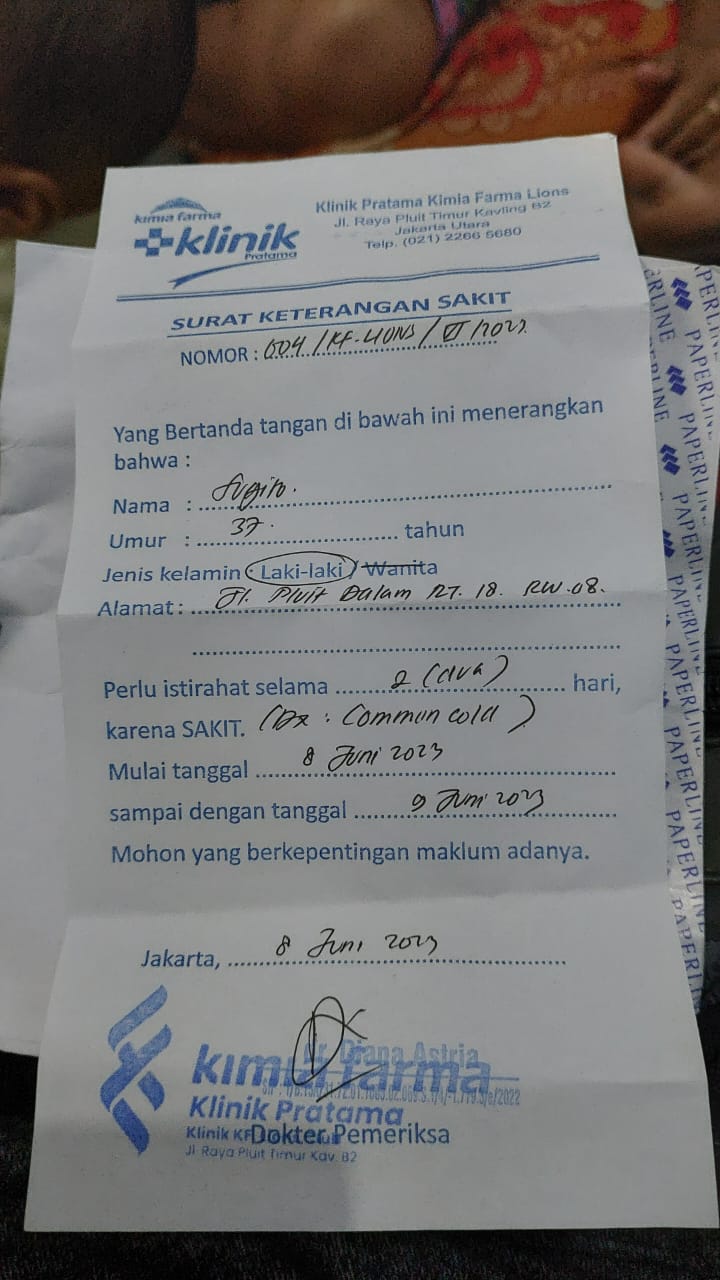 kimia farma
klinik
Pratama
Klinik Pratama Kimia Farma Lions
Jl. Raya Pluit Timur Kavling B2
Jakarta Utara
Telp. (021) 2266 5680
SURAT KETERANGAN SAKIT
NOMOR : 004 / KF-LIONS / VI / 2023
Yang Bertanda tangan di bawah ini menerangkan
bahwa :
Nama : Sugito.
Umur : 37. tahun
Jenis kelamin Laki-laki / Wanita
Alamat : Jl. Pluit Dalam RT. 18. RW.08.
Perlu istirahat selama 2 (dua) hari,
karena SAKIT. (Dx : Common cold)
Mulai tanggal 8 Juni 2023
sampai dengan tanggal 9 Juni 2023
Mohon yang berkepentingan maklum adanya.
Jakarta, 8 Juni 2023
dr. Diana Astria
kimia farma
Klinik Pratama
Klinik KF
Dokter Pemeriksa
Jl. Raya Pluit Timur Kav. B2
PAPERLINE
PAPERLINE
PAPERLINE
PAPERLINE
PAPERLINE
PAPERLINE
PAPERLINE